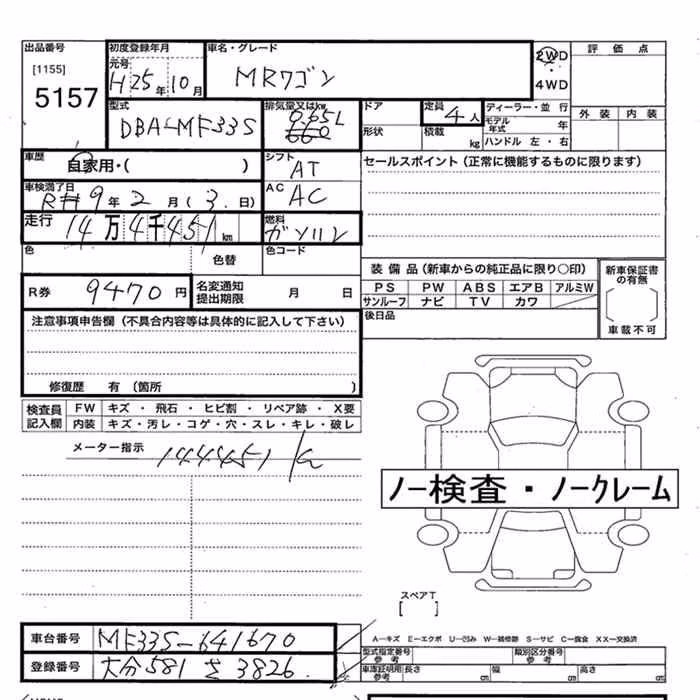 出品番号 初度登録年月 車名・グレード 2WD 評価点
[1155] 元号 H25年10月 MRワゴン ・
5157 4WD
型式 排気量又はkw ドア 定員 4人 ディーラー・並行 外装 内装
DBA-MF33S 0.65L 形状 積載 kg モデル年式 年
660 ハンドル 左・右
車歴 自家用・( ) シフト AT セールスポイント(正常に機能するものに限ります)
車検満了日 AC AC
R 9年2月(3日)
走行 14万4千451km 燃料 ガソリン
色 色替 色コード
装備品(新車からの純正品に限り○印) 新車保証書の有無
R券 9470円 名変通知提出期限 月 日 PS PW ABS エアB アルミW
サンルーフ ナビ TV カワ
注意事項申告欄(不具合内容等は具体的に記入して下さい) 後日品 車載不可
修復歴 有(箇所 )
検査員記入欄 FW キズ・飛石・ヒビ割・リペア跡・X要
内装 キズ・汚レ・コゲ・穴・スレ・キレ・破レ
メーター指示 144451 k
ノー検査・ノークレーム
スペアT
[ ]
車台番号 MF33S-641670 A-キズ E-エクボ U-凹み W-補修跡 S-サビ C-腐食 XX-交換済
型式指定番号 参考 類別区分番号 参考
登録番号 大分581 さ3826 車庫証明用参考 長さ cm 幅 cm 高さ cm